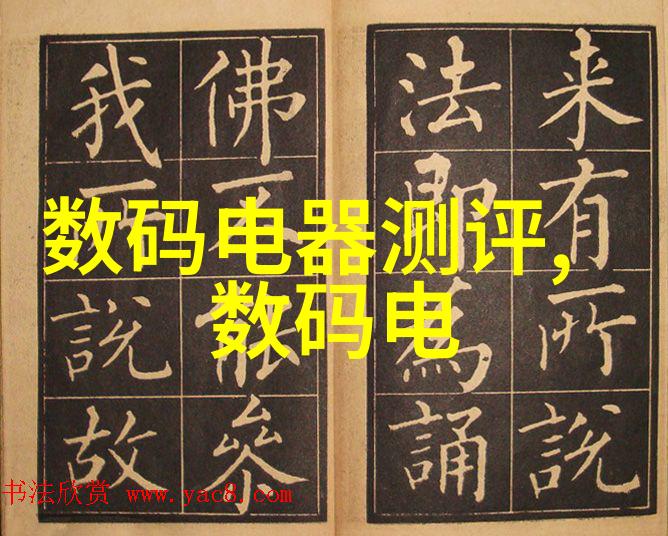 来有所說
法即為誦
佛不能叅
我所說故
数码电器测评,
数码电
书法欣赏 www.yac8.com